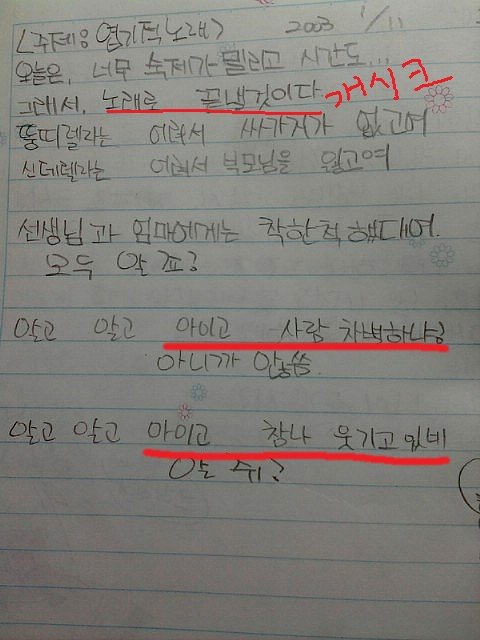 <주제:엽기적 노래> 2003 1/11
오늘은, 너무 숙제가 밀리고 시간도...
그래서, 노래로 끝낼것이다 개시크
뚱띠렐라는 어려서 싸가지가 없고여
신데렐라는 어려서 부모님을 잃고여
선생님과 엄마에게는 착한척 해대여.
모두 알죠?
알고 알고 아이고 사람 차별하냐?
아니까 않씀.
알고 알고 아이고 참나 웃기고 있네
알 쥐?